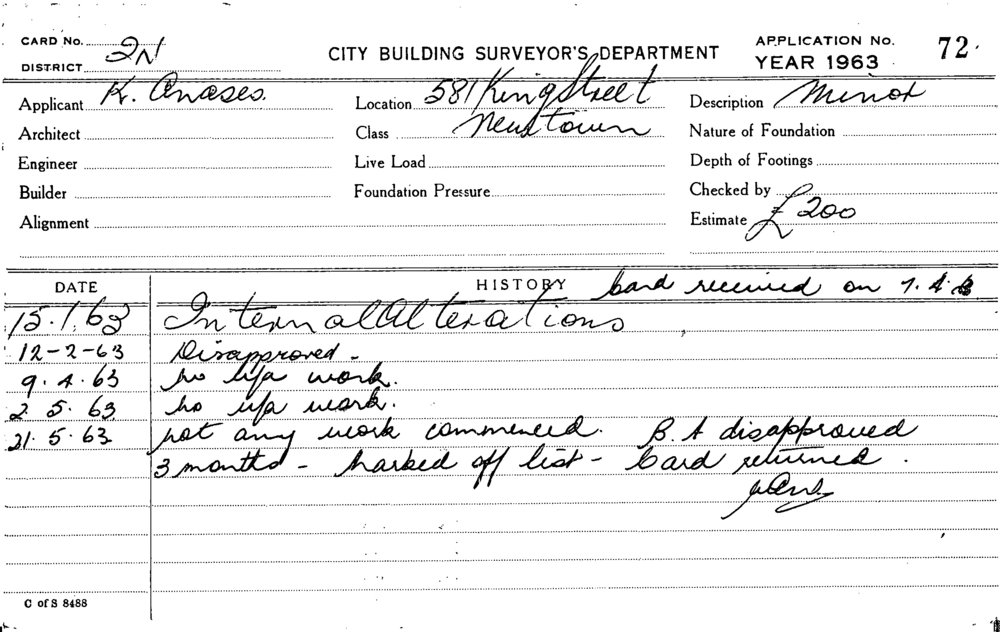 CARD No.
DISTRICT 2N
CITY BUILDING SURVEYOR'S DEPARTMENT
APPLICATION No. 72
YEAR 1963
Applicant K. Anases.
Location 581 King Street
Description Minor
Architect
Class Newtown
Nature of Foundation
Engineer
Live Load
Depth of Footings
Builder
Foundation Pressure
Checked by
Alignment
Estimate £200
DATE
HISTORY Card received on 7.4.
15.1.63 Internal Alterations
12-2-63 Disapproved -
9.4.63 no work.
2 5. 63 no work.
21.5.63 not any work commenced. B.A disapproved
3 months - marked off list - Card returned.
C of S 8488